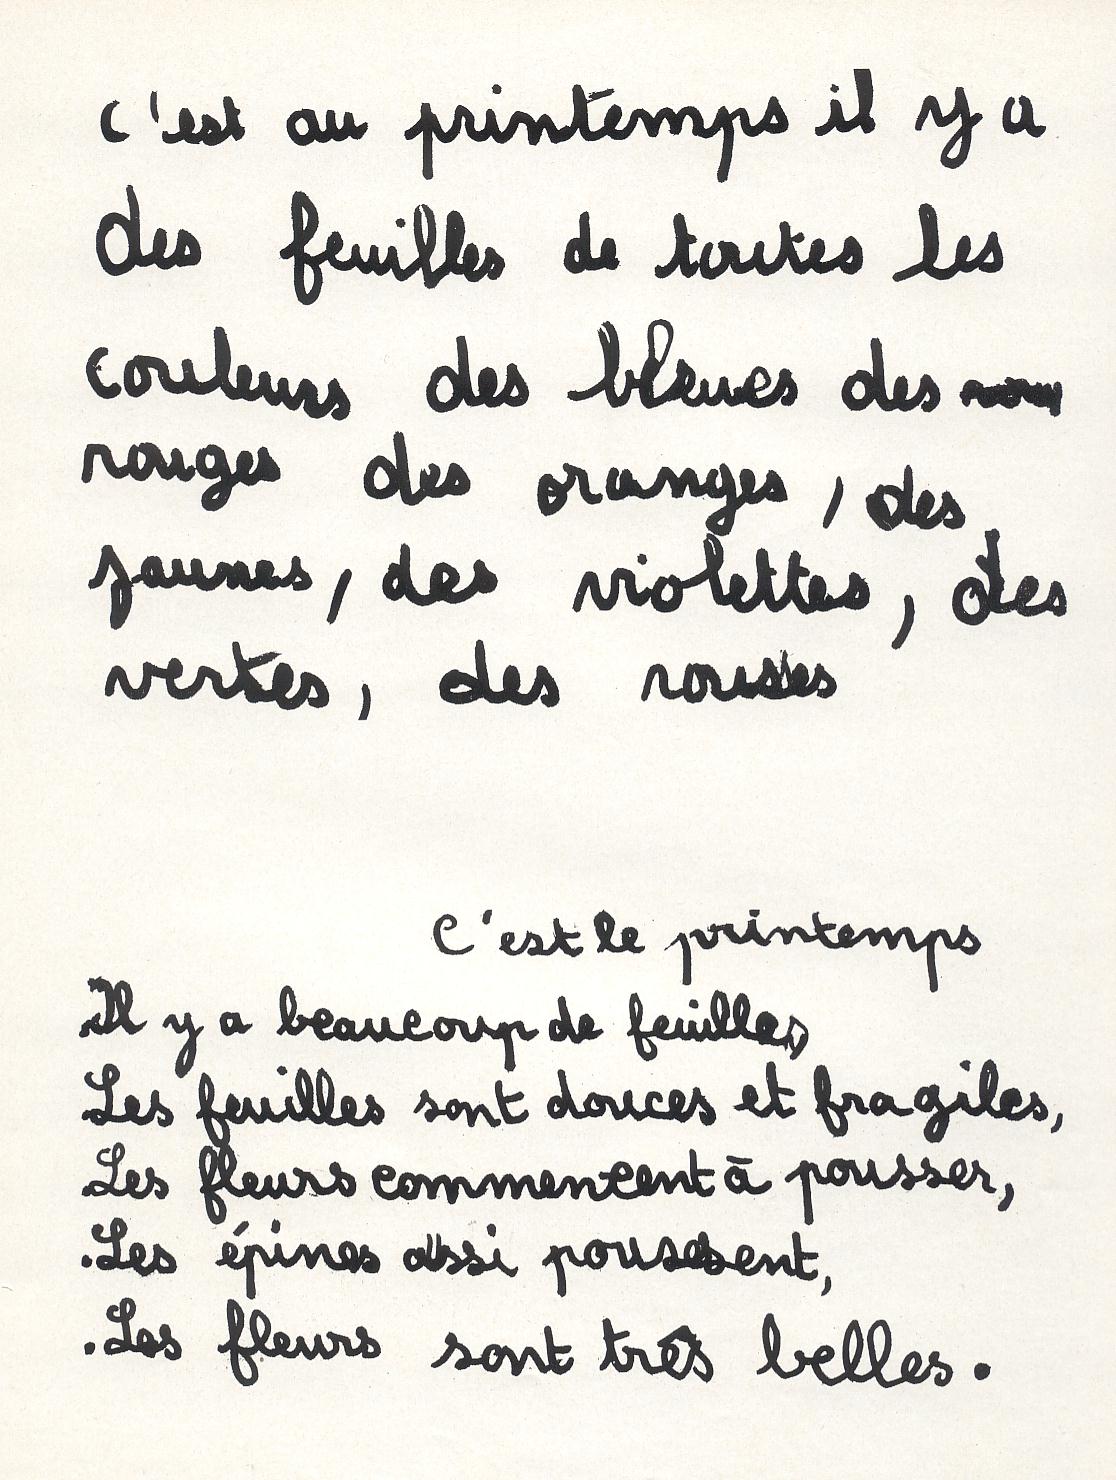 c'est au printemps il y a
des feuilles de toutes les
couleurs des bleues des
rouges des oranges, des
jaunes, des violettes, des
vertes, des rousses
C'est le printemps
Il y a beaucoup de feuilles,
Les feuilles sont douces et fragiles,
Les fleurs commencent à pousser,
.Les épines aussi poussent,
.Les fleurs sont très belles.